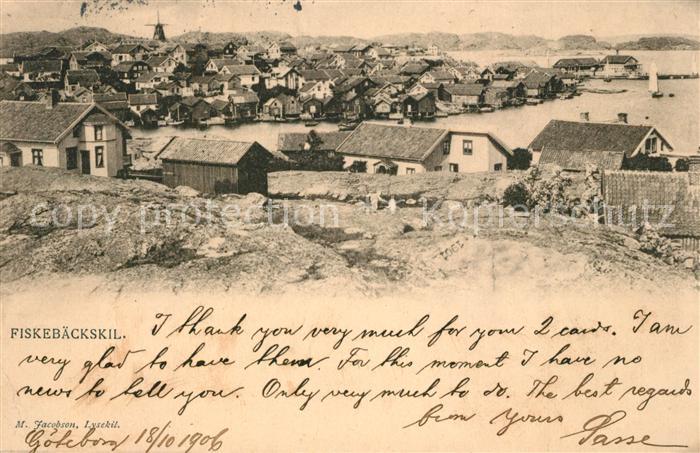 copyright copy protection copyright Shutterstock
FISKEBÄCKSKIL. I thank you very much for your 2 cards. I am
very glad to have them. For this moment I have no
news to tell you. Only very much to do. The best regards
M. Jacobson, Lysekil. from Yours
Göteborg 18/10 1906 Sasse